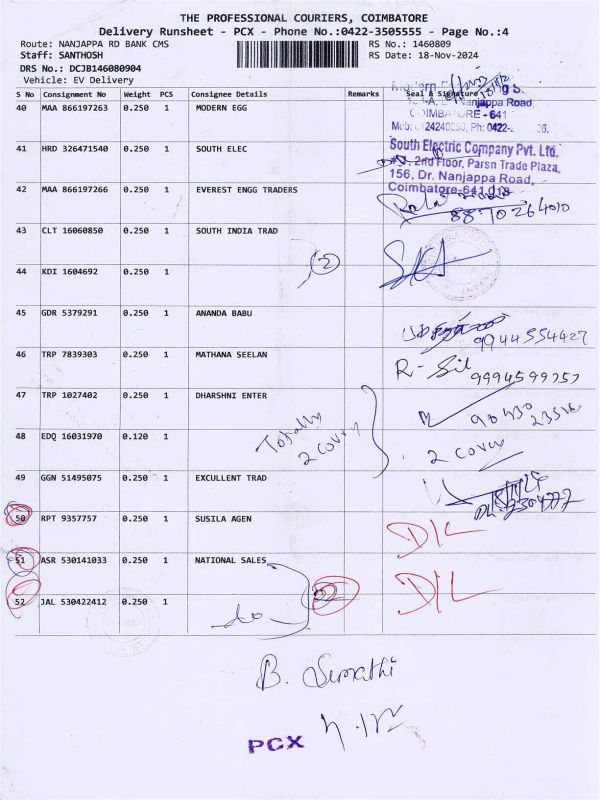 THE PROFESSIONAL COURIERS, COIMBATORE
Delivery Runsheet - PCX - Phone No.:0422-3505555 - Page No.:4
Route: NANJAPPA RD BANK CMS RS No.: 1460809
Staff: SANTHOSH RS Date: 18-Nov-2024
DRS No.: DCJB146080904
Vehicle: EV Delivery
S No Consignment No Weight PCS Consignee Details Remarks Seal & Signature
40 MAA 866197263 0.250 1 MODERN EGG
Nanjappa Road,
COIMBATORE - 641
41 HRD 326471540 0.250 1 SOUTH ELEC
South Electric Company Pvt. Ltd.
2nd Floor, Parsn Trade Plaza,
156, Dr. Nanjappa Road,
Coimbatore-641 018
42 MAA 866197266 0.250 1 EVEREST ENGG TRADERS
88 70 264010
43 CLT 16060850 0.250 1 SOUTH INDIA TRAD
2
44 KDI 1604692 0.250 1
45 GDR 5379291 0.250 1 ANANDA BABU
9944554427
46 TRP 7839303 0.250 1 MATHANA SEELAN
9994599757
47 TRP 1027402 0.250 1 DHARSHNI ENTER
Totally
2 covry
48 EDQ 16031970 0.120 1
2 covry
49 GGN 51495075 0.250 1 EXCULLENT TRAD
50 RPT 9357757 0.250 1 SUSILA AGEN
D/L
51 ASR 530141033 0.250 1 NATIONAL SALES
52 JAL 530422412 0.250 1 do
2
D/L
B. Sumathi
PCX